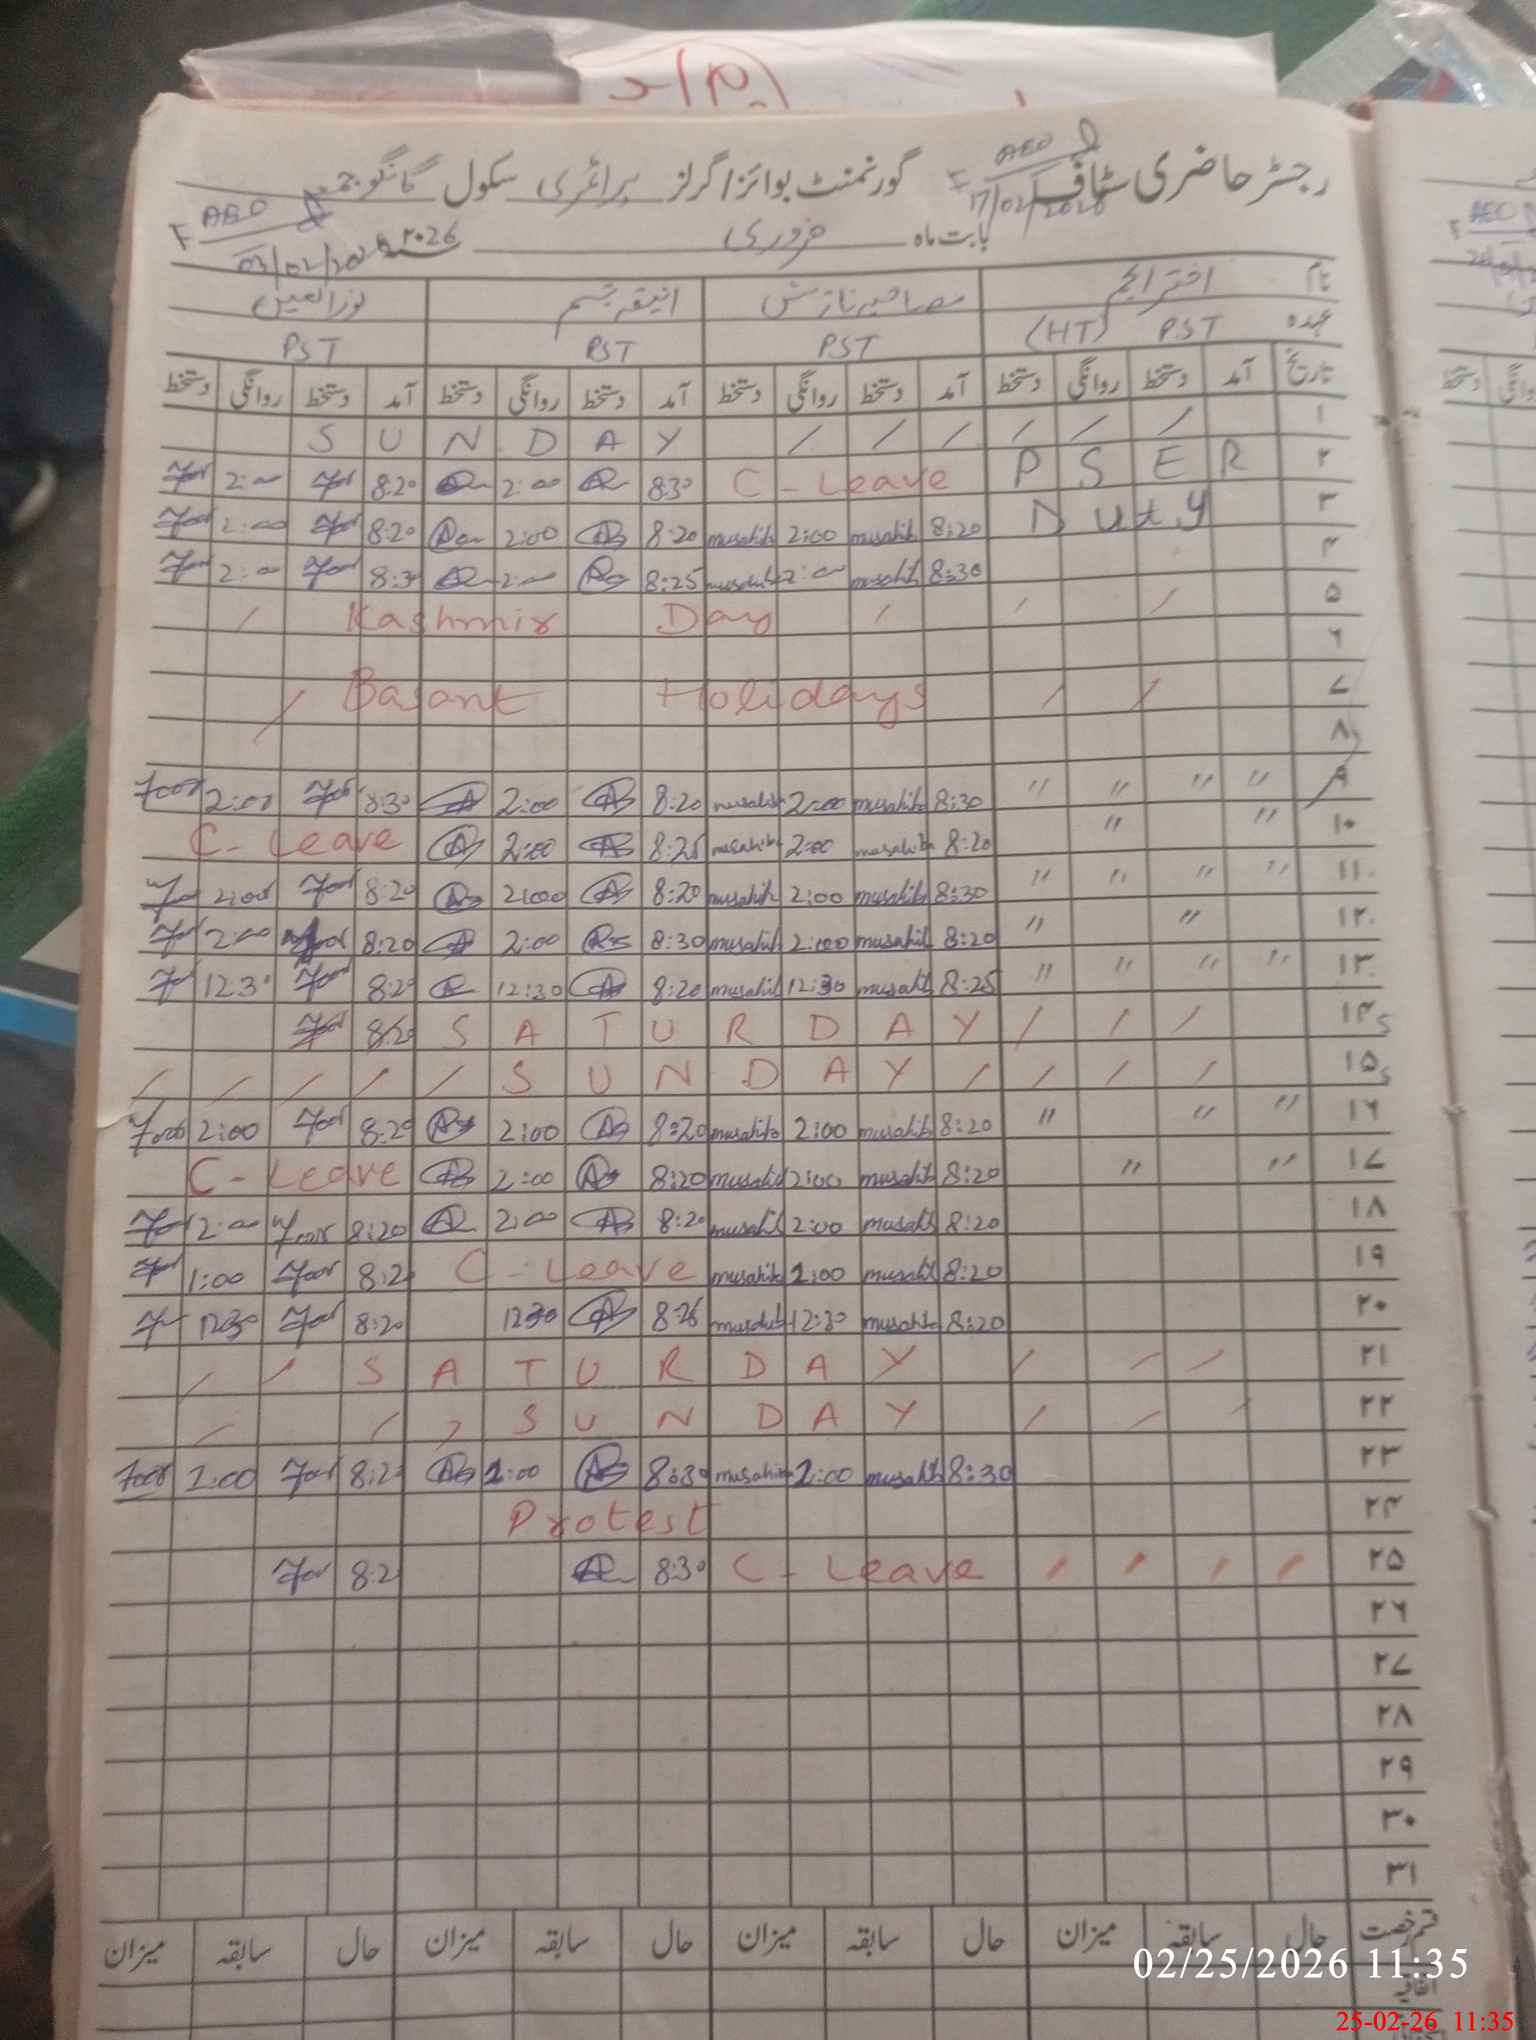 رجسٹر حاضری سٹاف گورنمنٹ بوائز/گرلز پرائمری سکول
AEO
17/02/2026
AEO
03/02/2026
بابت ماہ فروری ۲۰۲۶
نام اختر انجم مصاحبہ نازش انیقہ تبسم نورالعین
عہدہ PST (HT) PST PST PST
تاریخ آمد دستخط روانگی دستخط آمد دستخط روانگی دستخط آمد دستخط روانگی دستخط آمد دستخط روانگی دستخط
۱ / / / / / / SUNDAY
۲ PSER C-Leave 8:30 2:00 8:20 2:00
۳ Duty 8:20 musahib 2:00 musahib 8:20 2:00 8:20 2:00
۴ 8:30 musahib 2:00 musahib 8:25 2:00 8:30 2:00
۵ / / / Kashmir Day /
۶
۷ / / Basant Holidays /
۸
۹ " " " " 8:30 musahib 2:00 musahib 8:20 2:00 8:30 2:00
۱۰ " " 8:20 musahiba 2:00 musahiba 8:25 2:00 C-Leave
۱۱ " " " " 8:30 musahib 2:00 musahib 8:20 2:00 8:20 2:00
۱۲ " " 8:20 musahib 2:00 musahib 8:30 2:00 8:20 2:00
۱۳ " " " " 8:25 musahib 12:30 musahib 8:20 12:30 8:20 12:30
۱۴ / / / SATURDAY 8:20
۱۵ / / / / / SUNDAY / / / / /
۱۶ " " " 8:20 musahib 2:00 musahib 8:20 2:00 8:20 2:00
۱۷ " " 8:20 musahib 2:00 musahib 8:20 2:00 C-Leave
۱۸ 8:20 musahib 2:00 musahib 8:20 2:00 8:20 2:00
۱۹ 8:20 musahib 2:00 musahib C-Leave 8:20 1:00
۲۰ 8:20 musahib 12:30 musahib 8:25 12:30 8:20 12:30
۲۱ / / / SATURDAY / /
۲۲ / / / SUNDAY / / /
۲۳ 8:30 musahib 2:00 musahib 8:30 2:00 8:20 2:00
۲۴ Protest
۲۵ / / / / C-Leave 8:30 8:20
۲۶
۲۷
۲۸
۲۹
۳۰
۳۱
قسم رخصت حال سابقہ میزان حال سابقہ میزان حال سابقہ میزان حال سابقہ میزان
اتفاقیہ
02/25/2026 11:35
25-02-26 11:35